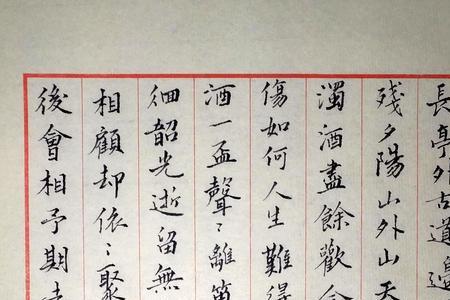 長亭外古道邊
殘夕陽山外山天
濁酒盡餘歡今
傷如何人生難得
酒一盃聲〻離笛
徊韶光逝留無
相顧却依〻聚
後會相予期去